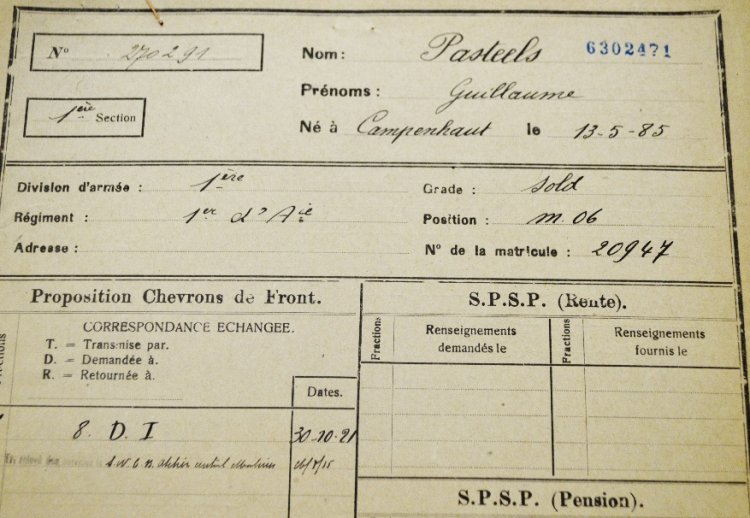 N° 270291
Nom: Pasteels 6302471
Prénoms: Guillaume
1ère Section
Né à Campenhaut le 13-5-85
Division d'armée: 1ère Grade: sold
Régiment: 1er d'Aie Position: m.06
Adresse: N° de la matricule: 20947
Proposition Chevrons de Front.
S.P.S.P. (Rente).
CORRESPONDANCE ECHANGEE.
T. = Transmise par.
D. = Demandée à.
R. = Retournée à.
Dates.
Fractions
Renseignements
demandés le
Fractions
Renseignements
fournis le
8. D. I 30-10-21
S.P.S.P. (Pension).